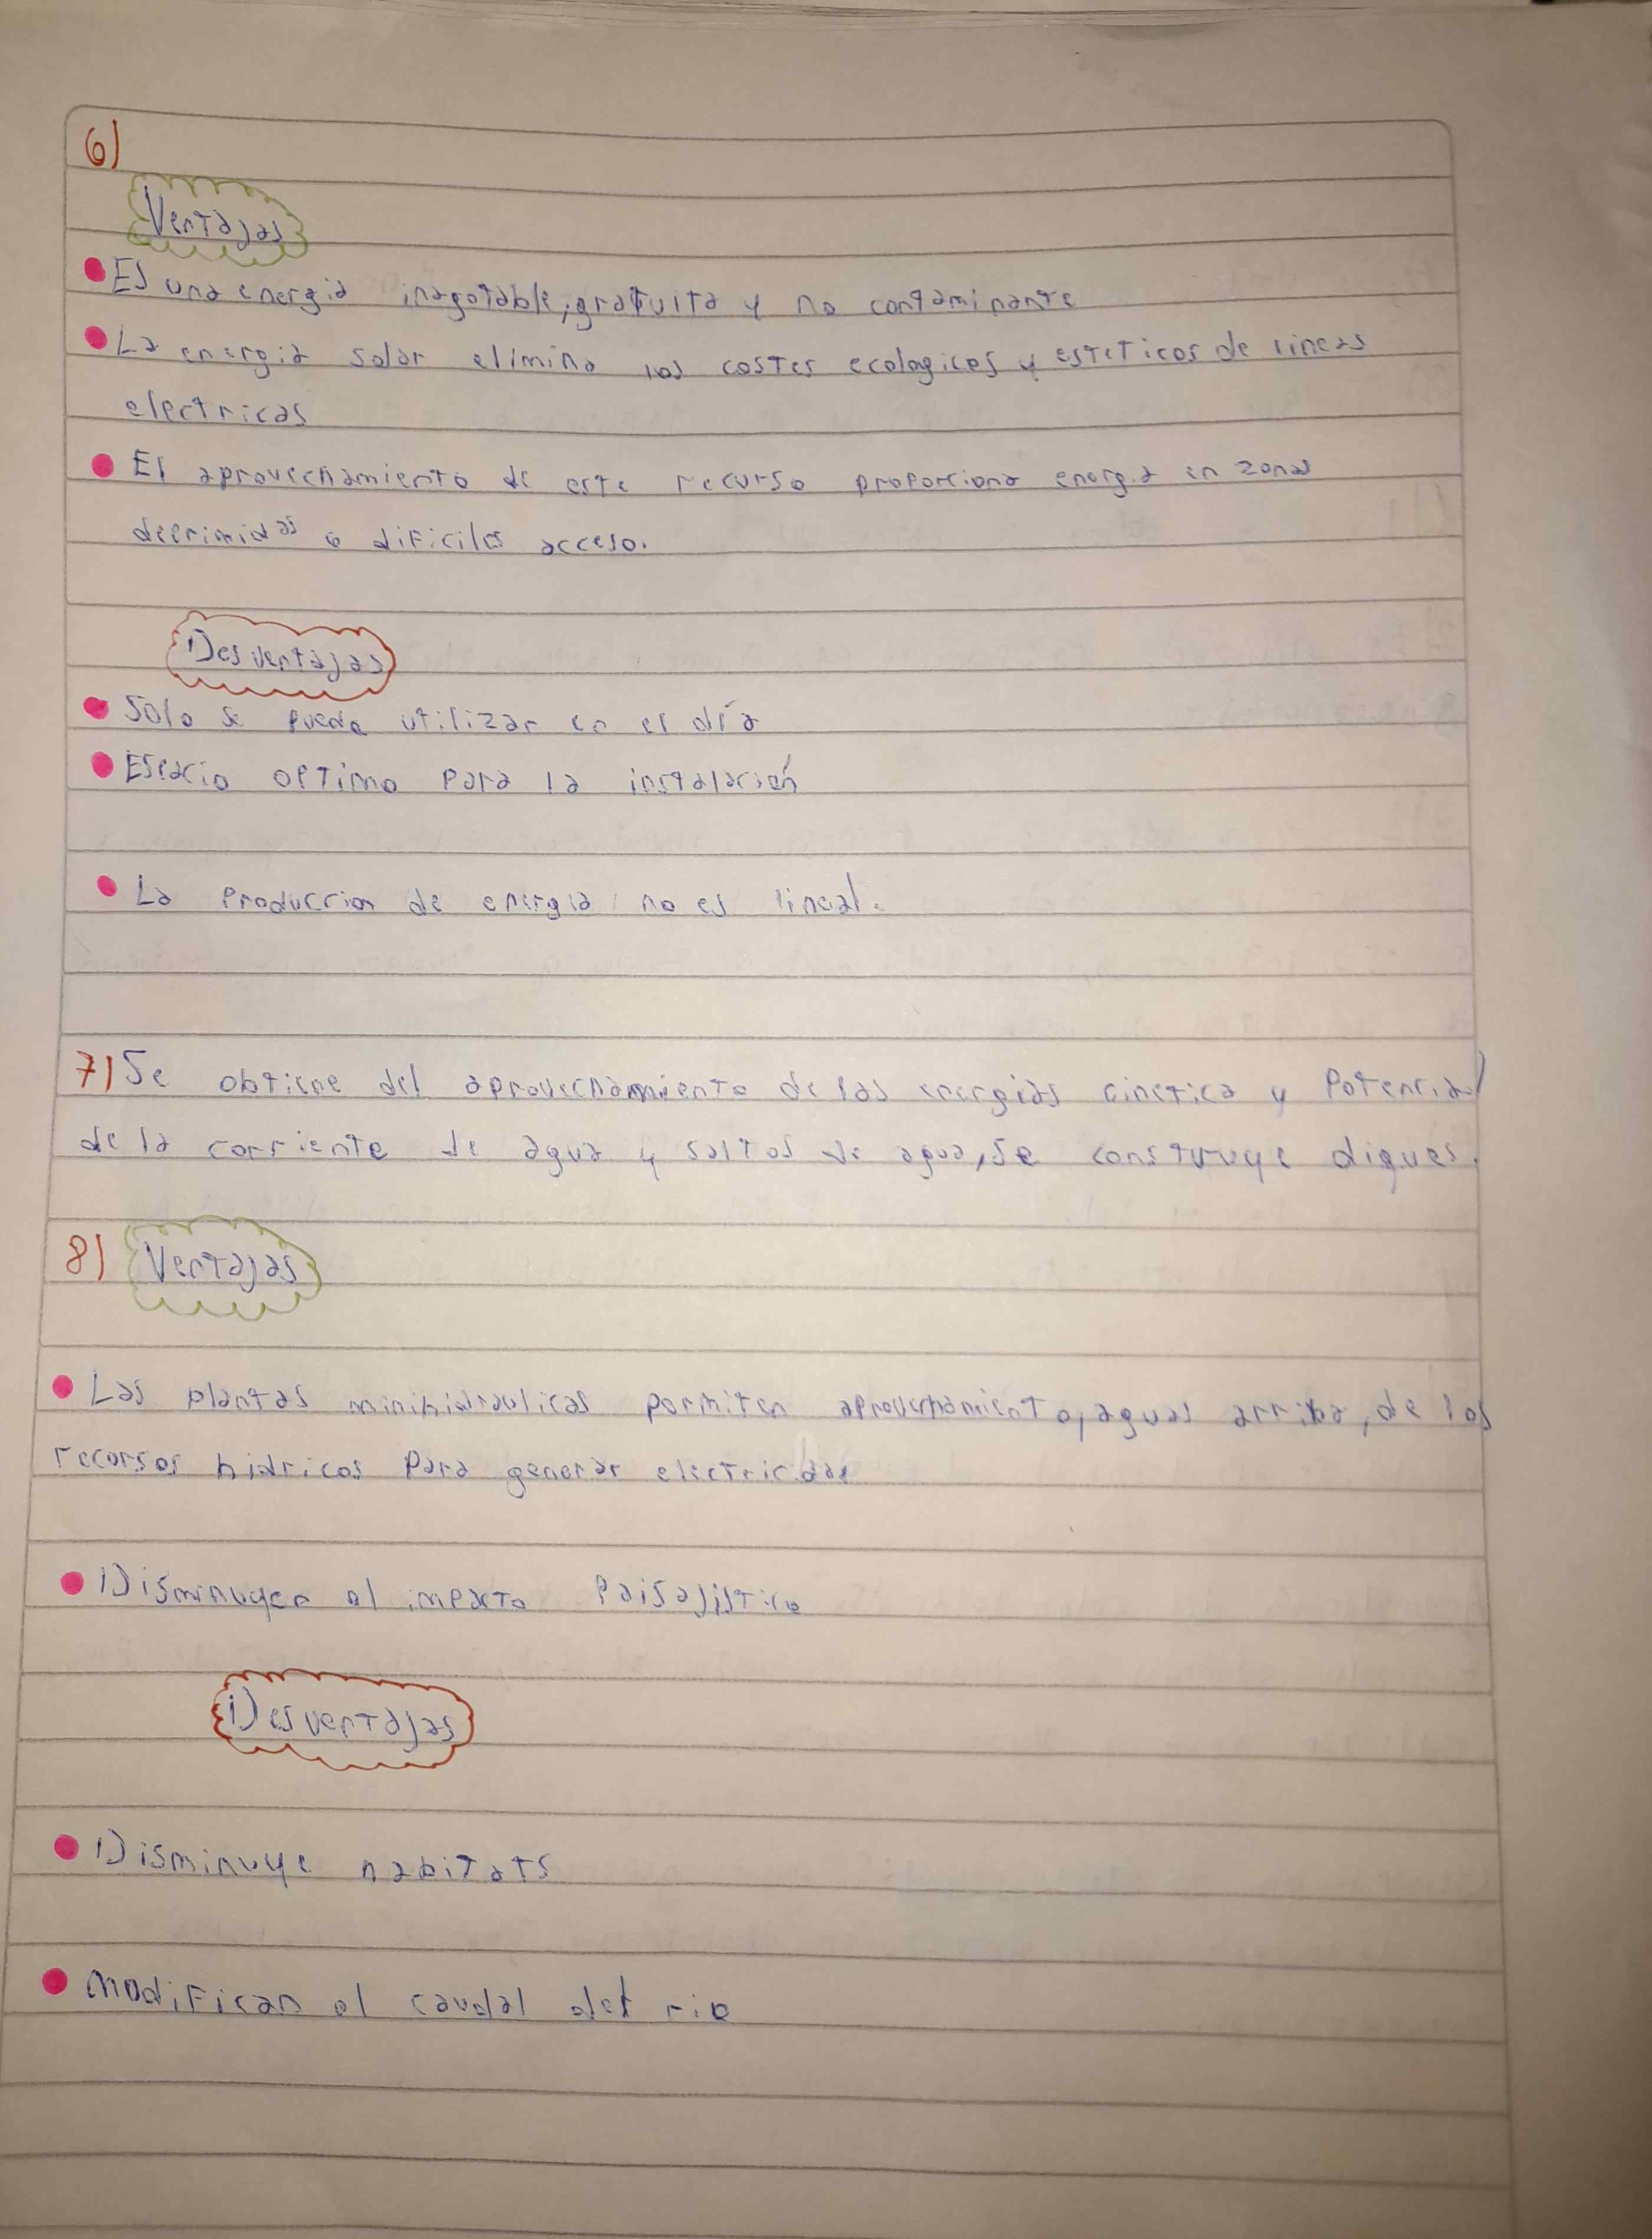 6)
Ventajas
Es una energia inagotable, gratuita y no contaminante
La energia solar elimina los costes ecologicos y esteticos de lineas
electricas
El aprovechamiento de este recurso proporciona energia en zonas
o dificiles acceso.
Desventajas
Solo se puede utilizar en el día
Espacio optimo para la instalación
La produccion de energia no es lineal.
7) Se obtiene del aprovechamiento de las energias cinetica y Potencial
de la corriente de agua y saltos de agua, se construye diques.
8) Ventajas
Las plantas minihidraulicas permiten aprovechamiento, aguas arriba, de los
recursos hidricos para generar electricidad
Disminuyen el impacto paisajistico
Desventajas
Disminuye habitats
Modifican el caudal del rio